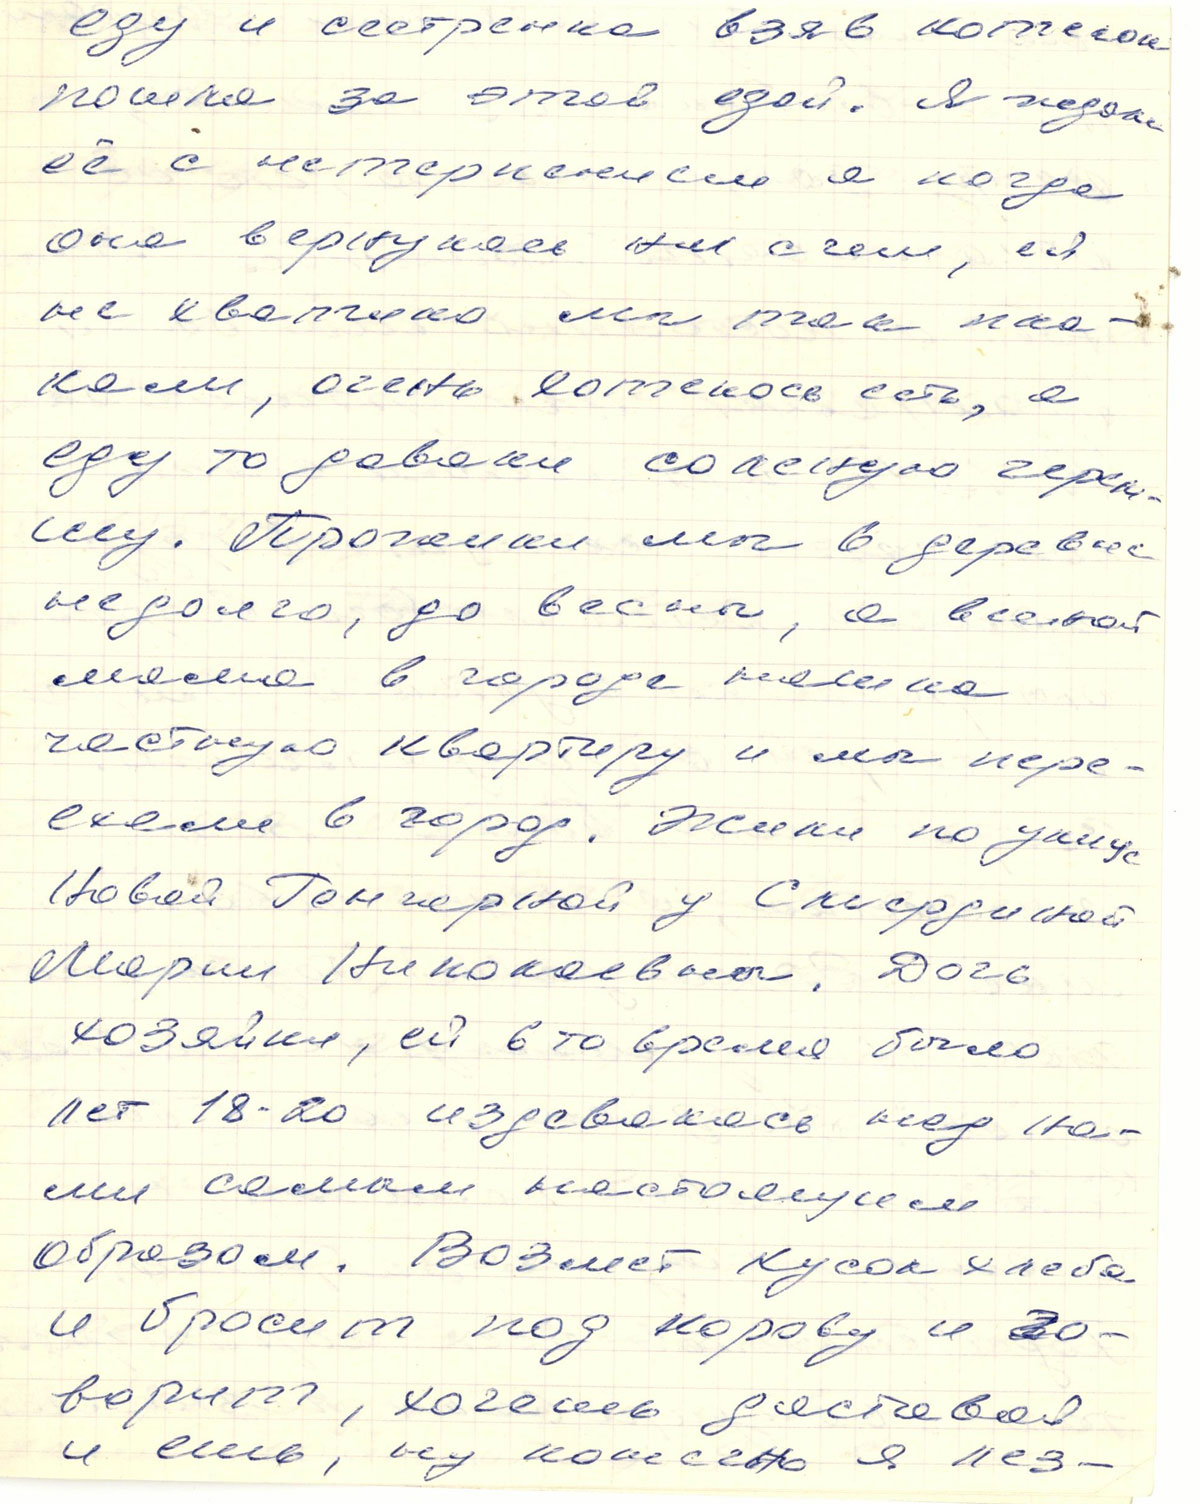 еду и сестренка взяв котелок
пошла за этой едой. Я ждала
её с нетерпением а когда
она вернулась ни с чем, ей
не хватило мы так пла-
кали, очень хотелось есть, а
еду то давали соленую череп-
шу. Прожили мы в деревне
недолго, до весны, а весной
мама в городе нашла
частную квартиру и мы пере-
ехали в город. Жили по улице
Новой Гончарной у Смердиной
Марии Николаевны. Дочь
хозяйки, ей в то время было
лет 18-20 издевалась над на-
ми самым настоящим
образом. Возмет кусок хлеба
и бросит под корову и го-
ворит, хочешь доставай
и ешь, ну конечно я лез-